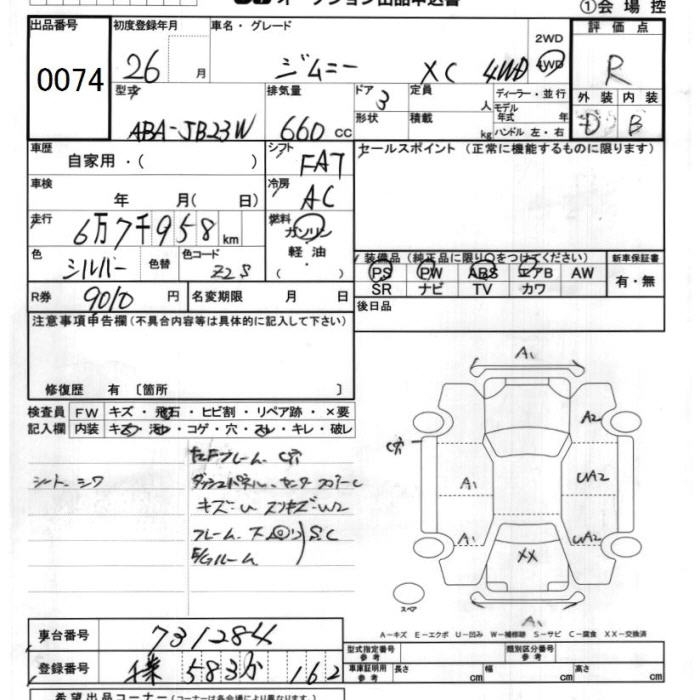 オークション出品申込書
①会場控
出品番号
0074
初度登録年月
26 月
車名・グレード
ジムニー XC 4WD
2WD
4WD
評価点
R
型式
ABA-JB23W
排気量
660 cc
ドア
3
形状
定員 人
積載 kg
ディーラー・並行
モデル年式 年
ハンドル 左・右
外装 内装
D B
車歴
自家用・( )
シフト
FAT
セールスポイント (正常に機能するものに限ります)
車検
年 月( 日)
冷房
AC
走行
6万7千958 km
燃料
ガソリン
軽油
( ・ )
色
シルバー
色替
色コード
Z2S
装備品 (純正品に限り○をつけてください)
新車保証書
PS PW ABS エアB AW
有・無
SR ナビ TV カワ
R券
9010 円
名変期限 月 日
後日品
注意事項申告欄 (不具合内容等は具体的に記入して下さい)
修復歴 有 〔箇所 〕
検査員 FW キズ・飛石・ヒビ割・リペア跡・×要
記入欄 内装 キズ・汚れ・コゲ・穴・スレ・キレ・破レ
シート シワ
フレーム C穴
キズ:U スリキズ:W2
フレーム 下回り S.C
ルーム
A1
A2
C穴
A1
UA2
A1
UA2
XX
スペア
A1
A-キズ E-エクボ U-凹み W-補修跡 S-サビ C-腐食 XX-交換済
車台番号
731284
型式指定番号
参考
類別区分番号
参考
登録番号
千葉 583 162
車庫証明用
参考
長さ cm
幅 cm
高さ cm
希望出品コーナー (コーナーは各会場により異なります)